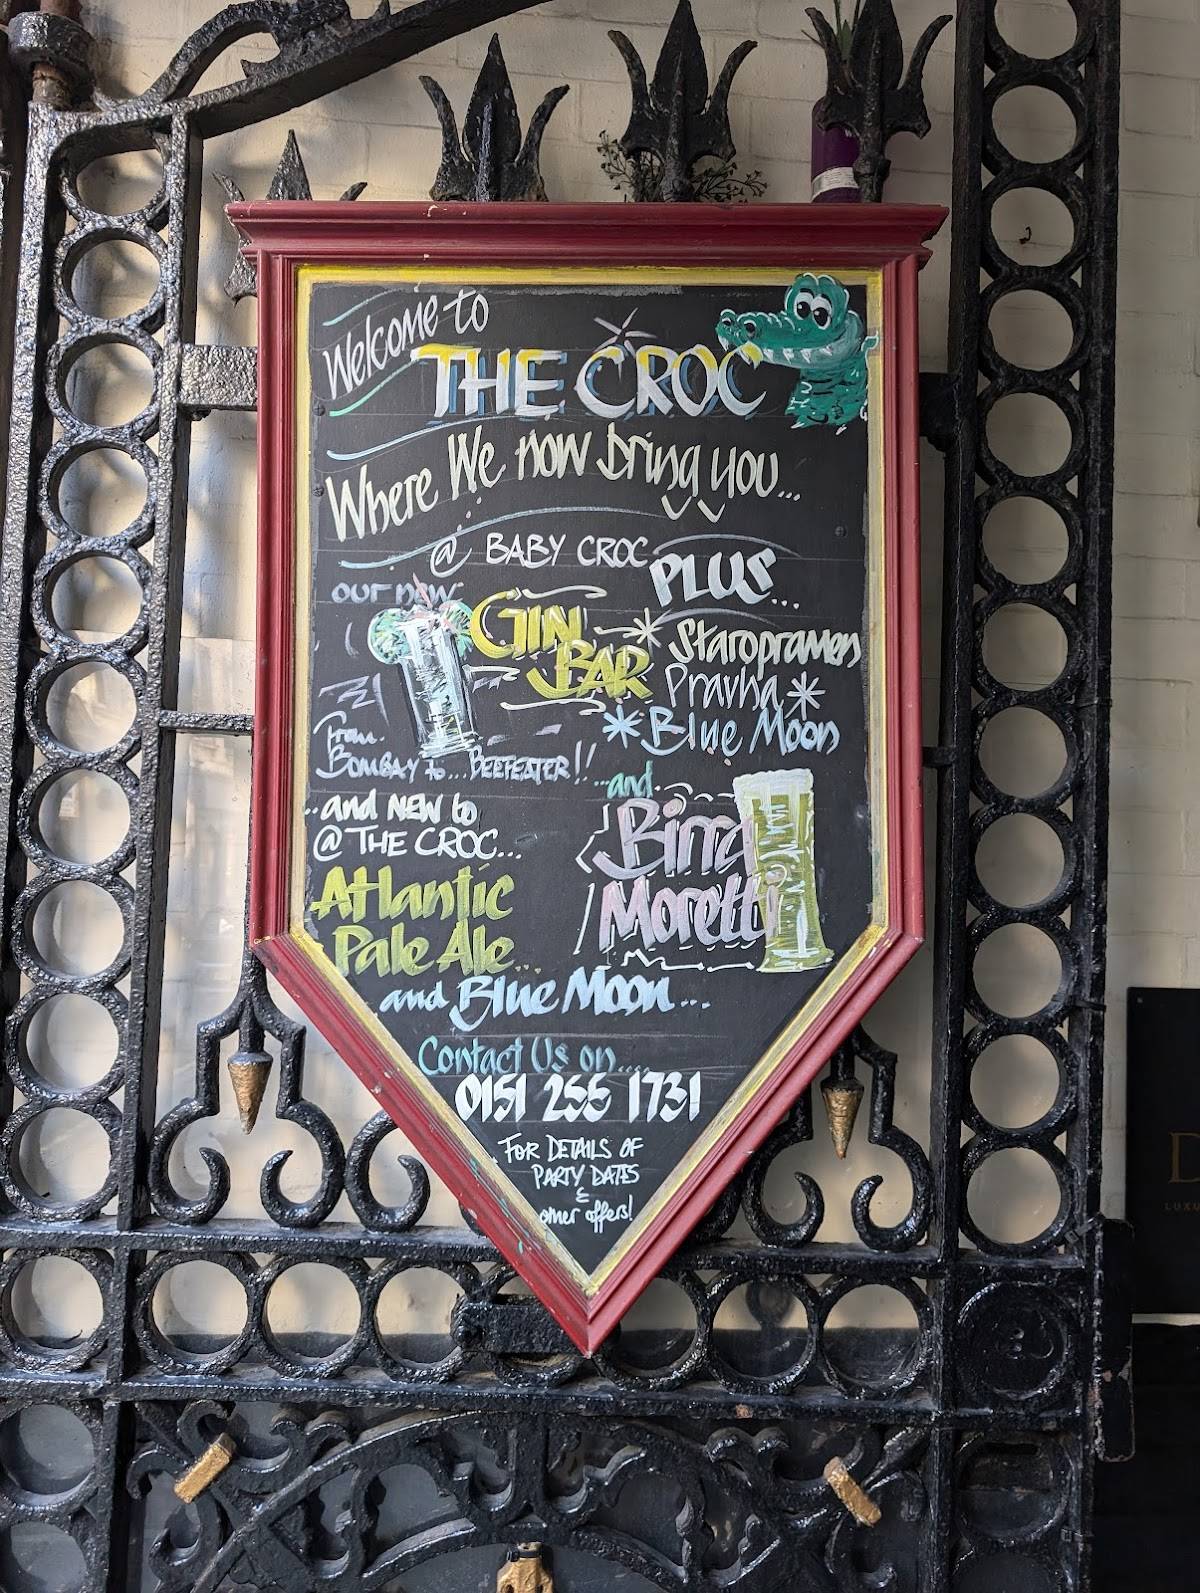 Welcome to
THE CROC
Where We now bring you...
@ BABY CROC
our new
GIN
BAR
From
BOMBAY to... BEEFEATER!!
PLUS...
Staropramen
Pravha
Blue Moon
...and
Birra
Moretti
..and NEW to
@ THE CROC...
Atlantic
Pale Ale...
and Blue Moon...
Contact Us on....
0151 255 1731
FOR DETAILS OF
PARTY DATES
&
other offers!